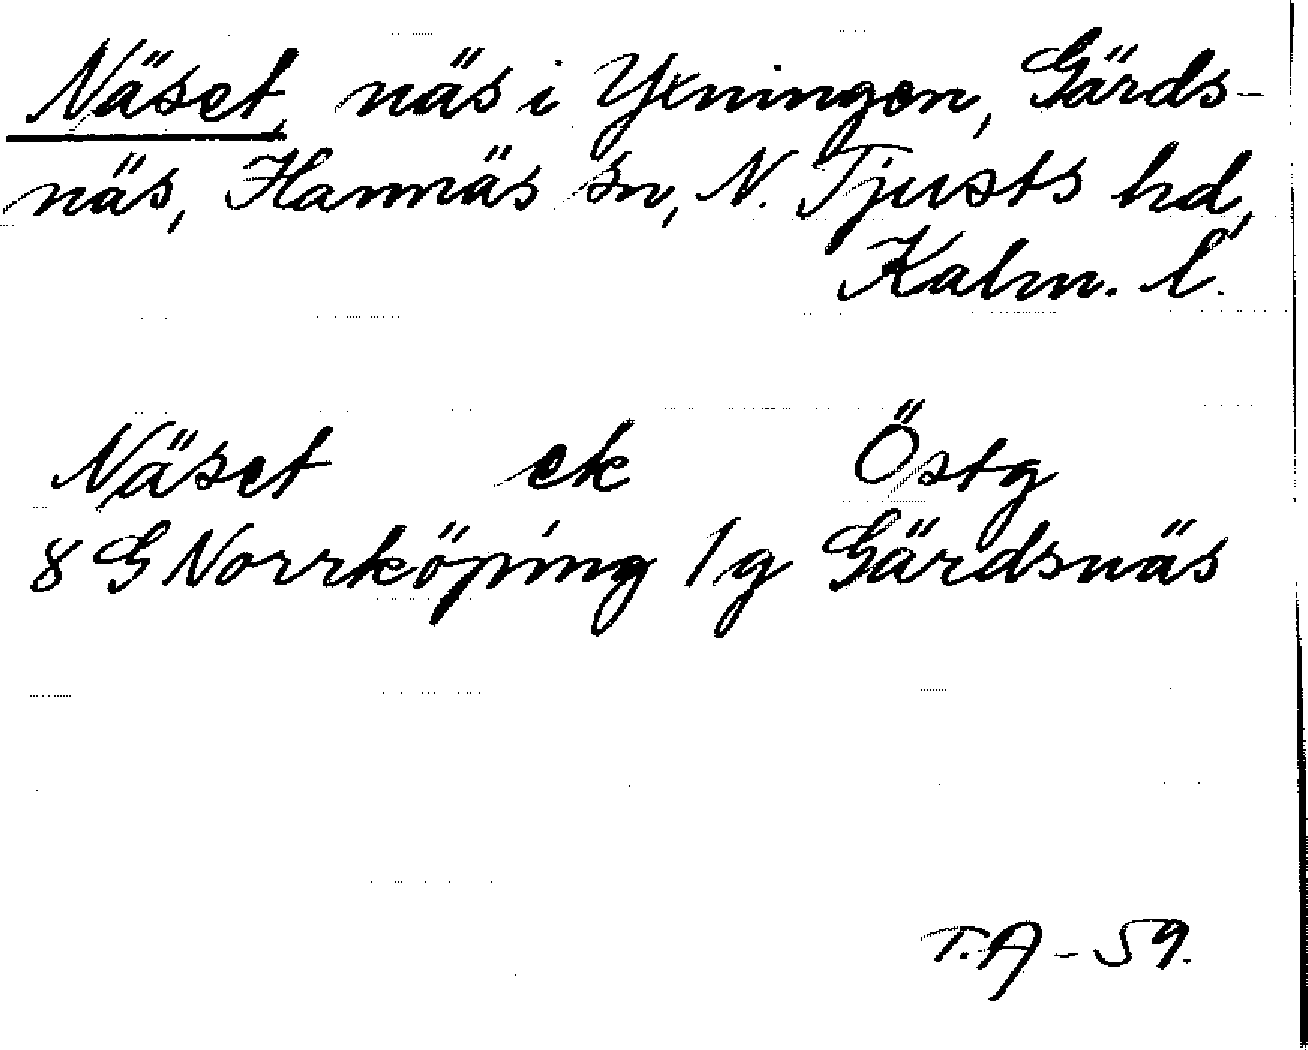 Näset, näs i Yxningen, Gärds-
näs, Hannäs sn, N. Tjusts hd,
Kalm. l.
Näset ek Östg
8 G Norrköping 1g Gärdsnäs
T.A - 59.